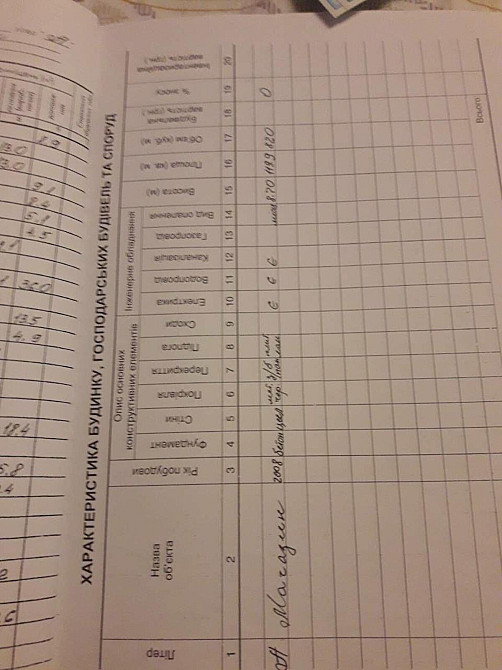 ХАРАКТЕРИСТИКА БУДИНКУ, ГОСПОДАРСЬКИХ БУДІВЕЛЬ ТА СПОРУД
Літер
Назва об'єкта
Рік побудови
Опис основних конструктивних елементів
Фундамент
Стіни
Покрівля
Перекриття
Підлога
Сходи
Інженерне обладнання
Електрика
Водопровід
Каналізація
Газопровід
Вид опалення
Висота (м)
Площа (кв. м)
Об'єм (куб. м)
Будівельна вартість (грн.)
% зносу
Інвентаризаційна вартість (грн.)
1 2 3 4 5 6 7 8 9 10 11 12 13 14 15 16 17 18 19 20
Магазин 2008 бетон цегл. є є є 8.70 1199 820 0
Всього
7.9
13.0
9.1
8.4
5.1
4.5
36.0
13.5
4.9
18.4